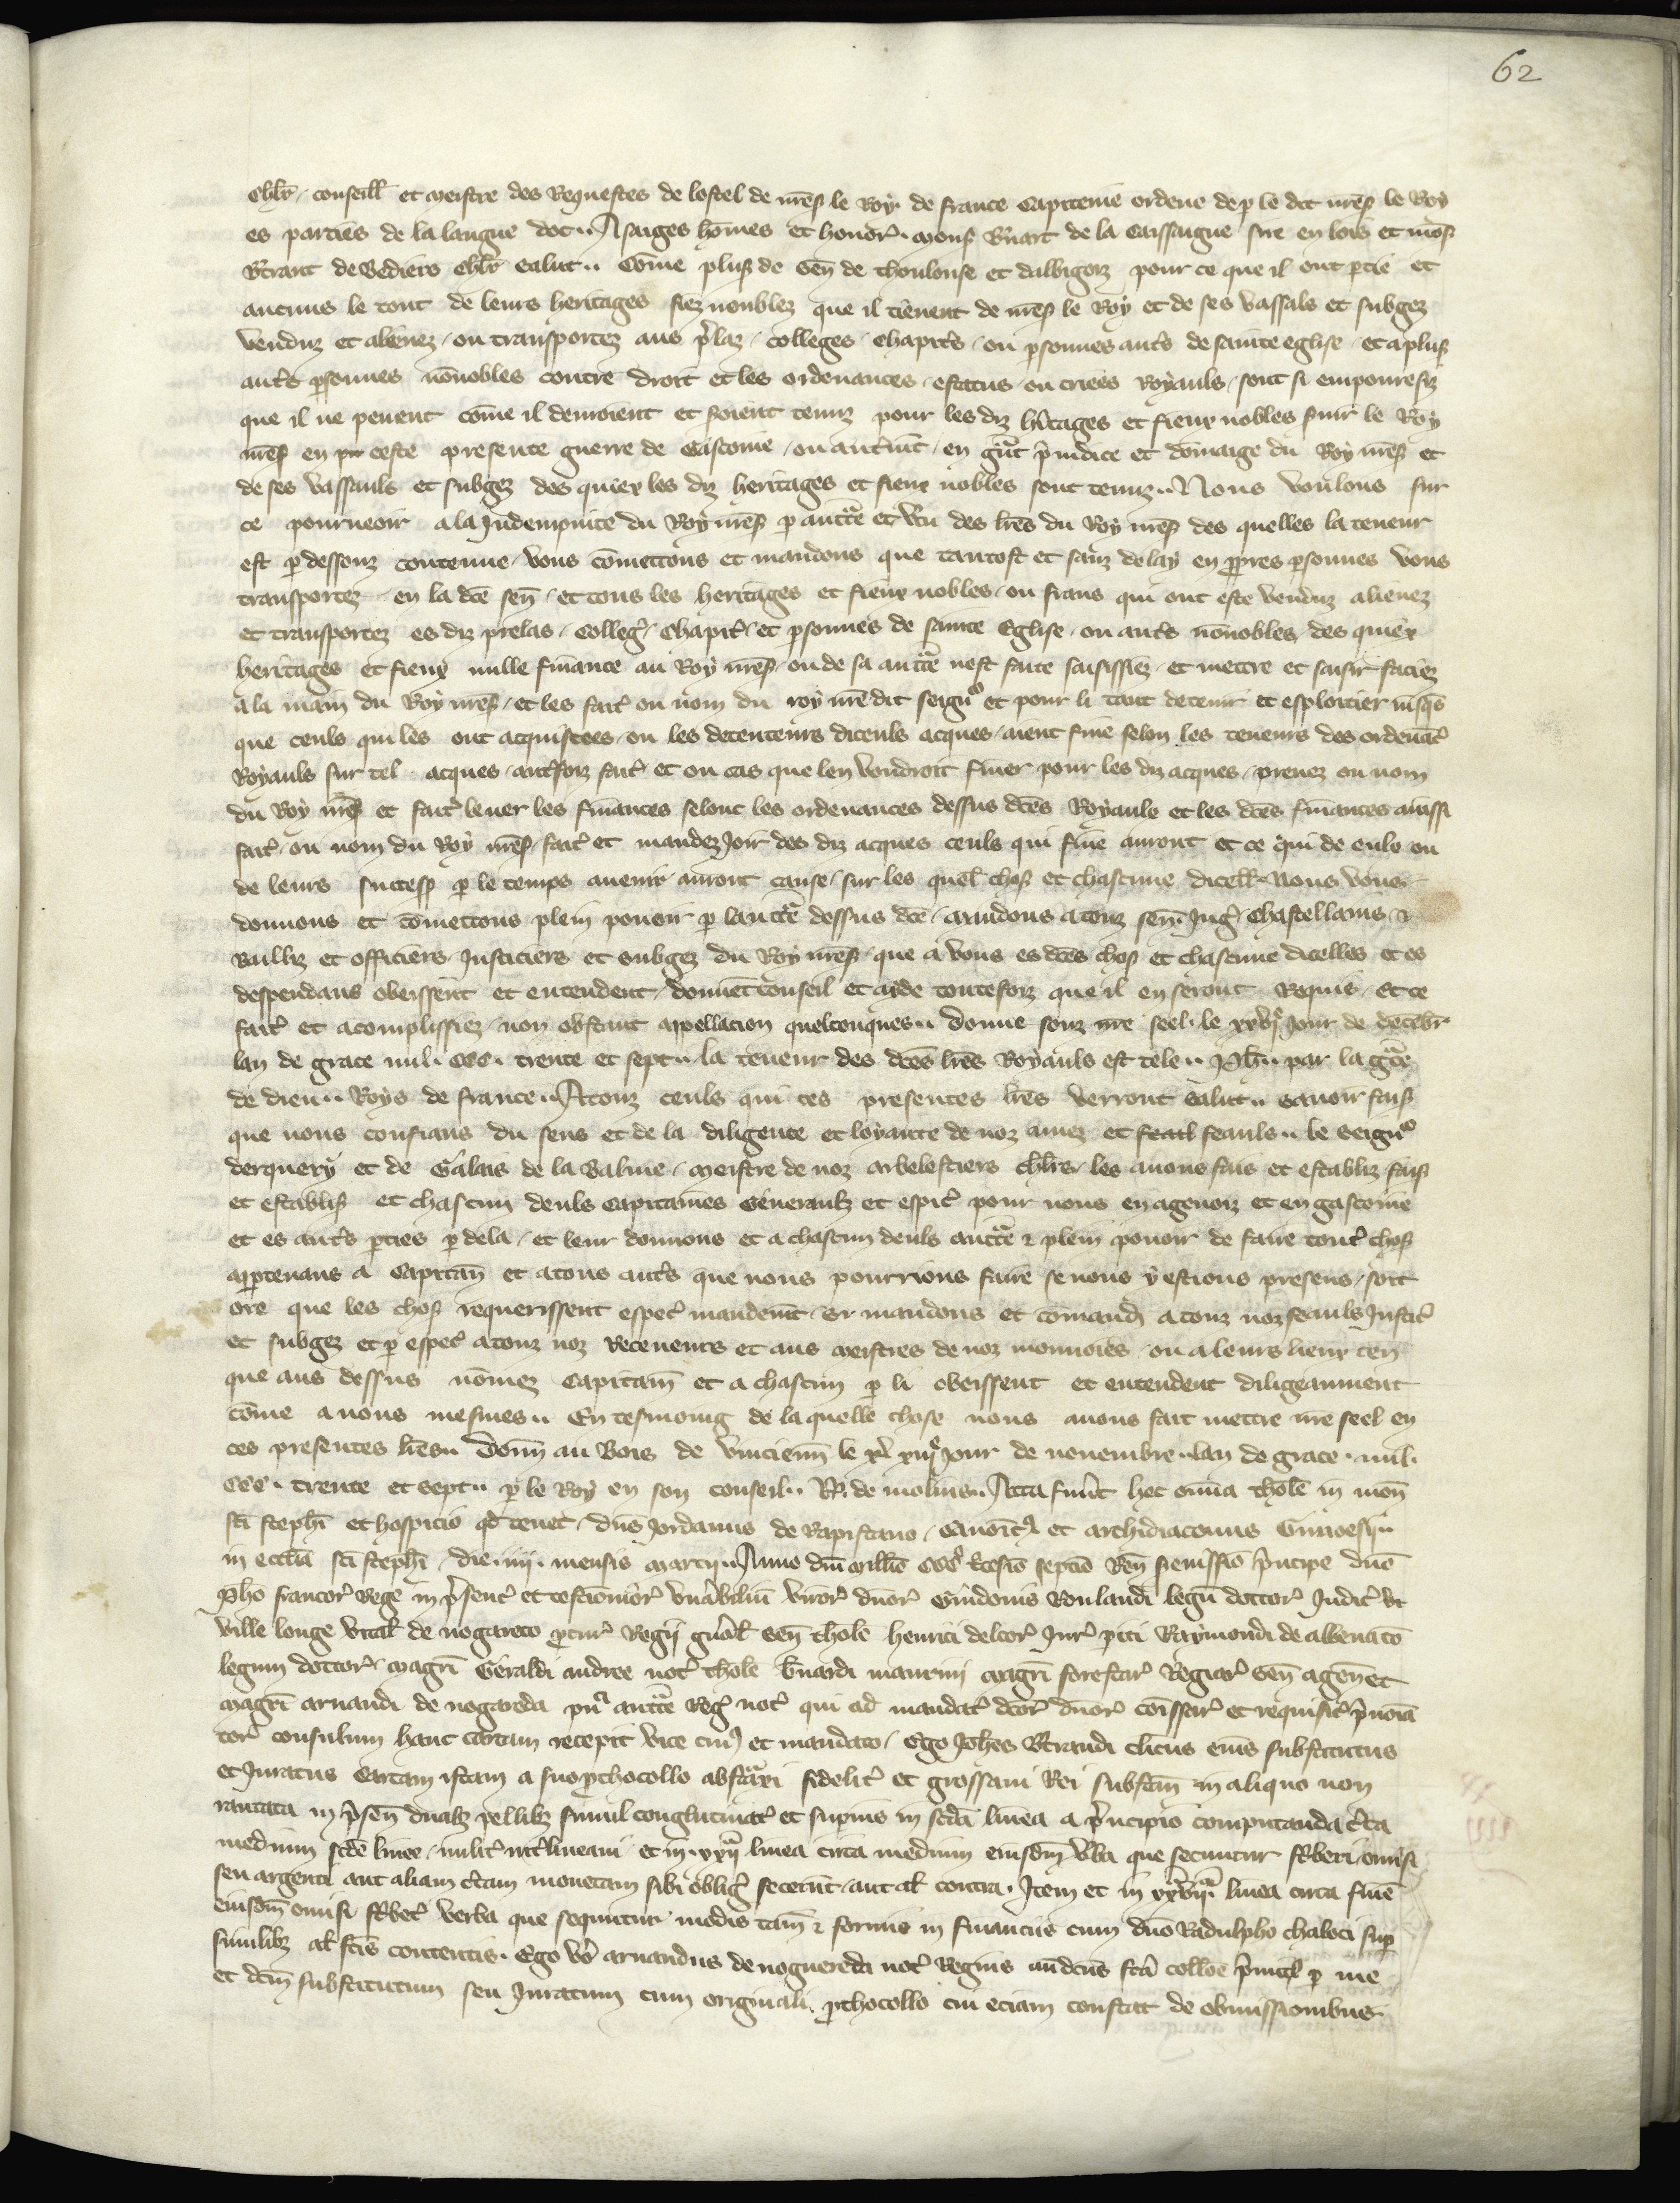 62
chlr̄ conseill̄ et meistre des Requestes de lostel de mess̄ le Roy de france Capitenie ordene de p̱ le dit mess̄ le Roy
es parties de la langue doc .. A saiges hōmes et honor̄. mons̄ B̄nart de la Caissaigne sire en lois et mōs̄
B̄trant de Bediers chlr̄ salut .. Cōme plus̄ de Sen̄ de thoulouse et dalbigoiz pour ce que il ont p̱tie et
aucuns le tout de leurs heritages fiez noublez que il tienent de mess̄ le Roy et de ses vassals et subgez
venduz et alienez / ou transportez aus p̄laz / colleges / chapitr̄s / ou p̱sonnes autr̄s de sainte eglise / et a plus̄
autr̄s p̱sonnes nōnobles contre droit et les ordenances / estatus ou criees Royauls / sont si empouresiz
que il ne peuent cōme il deuroient et soient tenuz pour les diz h̄itages et fieux nobles suir le Roy
mess̄ en ceste presente guerre de Gascoine / ou autr̄mt̄ / en gr̄at p̄iudice et dōmaige du Roy mess̄ et
de ses vassauls et subgez des quiex les diz heritages et fieux nobles sont tenuz .. Nous voulons sur
ce pourueoir a la Indempnite du Roy mess̄ p̱ auct̄te et v̄tu des lr̄es du Roy mess̄ des quelles la teneur
est p̱ dessouz contenue / vous cōmettons et mandons que tantost et sanz delay en p̱pres p̱sonnes vous
transportez / en la dc̄e sen̄ / et tous les heritages et fieux nobles / ou frans qui ont este venduz alienez
et transportez es diz prelas / Colleḡ / Chapitr̄ / et p̱sonnes de sainte Eglise / ou autr̄s nōnobles des quiex
heritages et fieux nulle finance au Roy mess̄ / ou de sa auct̄te nest faite saisissiez / et mettre et saisir faciez
a la main du Roy mess̄ / et les fait̄ ou nom du roy nr̄e dit seign̄r et pour li tant detenir et esploitier iusq̄s
que ceuls qui les ont acquistees / ou les detenteurs diceuls acques / aient fine selon les teneurs des ordenāt̄
Royauls sur tel acques / autr̄foiz fait̄ et ou cas que len voudroit finer pour les diz acques / prenez ou nom
du Roy mess̄ et fait̄ leuer les finances selonc les ordenances dessus dc̄es Royauls et les dc̄es finances aussi
fait̄ / ou nom du Roy mess̄ / fait̄ et mandez Joir des diz acques ceuls qui fine auront et ce qui de euls ou
de leurs success̄ p̱ le temps auenir auront cause / sur les quel̄ chos̄ et chascune dicell̄ Nous vous
donnons et cōmettons plein pouoir p̱ lauct̄te dessus dc̄e / mandons a touz sen̄ Juḡ / chastellains &
Bulliz et officiers Justiciers et subgez du Roy mess̄ / que a vous es dc̄es chos̄ et chascune dicelles et es
despendans obeissent et entendent / donnēt conseil et aide toutefoiz que il en seront Requis / et ce
fait̄ et acomplissiez / non obstant appellacion quelconques .. Donne souz nr̄e seel . le xxviᵉ Jour de decēbr̄
lan de grace mil . CCC . trente et sept .. la teneur des dc̄es lr̄es Royauls est tele .. Ph̄ .. par la gr̄ce
de dieu .. Roys de france .. A touz ceuls qui ces presentes lr̄es verront salut .. Sauoir fais̄
que nous confians du sens et de la diligence et loyaute de noz amez et feall feauls .. le seign̄r
derquery et de Galais de la Balme / meistre de noz arbelestiers chlr̄s / les auons fais et establiz / fais̄
et establis̄ et chascun deuls Capitaines Generaulz et espic̄ pour nous en agenoiz et en gascoine
et es autr̄s p̱ties p̱ dela / et leur donnons et a chascun deuls auct̄te & plein pouoir de faire tout̄ chos̄
app̱tenans a Capitan̄ et a tous autr̄s que nous pourrions faire se nous y estions presens / soit
ore que les chos̄ requerissent espec̄ mandemt̄ / Si mandons et cōmand̄ a touz noz feauls Justic̄
et subgez et p̱ espec̄ a touz noz Receueurs et aus meistres de noz monnoies / ou a leurs lieux ten̄
que aus dessus nōmez Capitain̄ et a chascun p̱ li obeissent et entendent diligeanment
cōme a nous mesmes .. En tesmoing de la quelle chose nous auons fait mettre nr̄e seel en
ces presentes lr̄es .. Donn̄ au Bois de vincienn̄ le xiiiᵉ Jour de nouembre .. lan de grace . mil.
CCC . trente et sept .. p̱ le Roy en son conseil .. R. de molins .. Acta fuer̄t hec om̄ia thōle in mon̄
sc̄i steph̄i et hospicio qd̄ tenet / dn̄s Jordanus de Rapistano / Canoīc̄ et archidiaconus
in ecc̄lia sc̄i steph̄i / die . iiii . mensis marcij .. Anno dn̄i mill̄io CCCº t̄cesīo septīo Reḡ s̄enissīo p̄ncipe dn̄o
Ph̄o francor̄ Rege in p̄senc̄ et testimōior̄ ven̄abiliū viror̄ dn̄or̄ Guidonis Roulandi legū doctor̄ Judic̄
ville longe vital̄ de nogareto p̱cur̄ Regij gn̄al̄ Sen̄ thōle henrici delcor̄ Jur̄ p̱iti Raymondi de albenāto
legum doctor̄ / magr̄i Geraldi andree not̄ thōle B̄nardi maurini magr̄i forestar̄ Regiar̄ Sen̄ agēn̄ et
magr̄i arnandi de nogareda pu̅ᵃ auct̄te Reḡ not̄ qui ad mandat̄ dc̄or̄ dn̄or̄ cōissar̄ et requisic̄ p̄noīa
tor̄ consulum hanc cartam recepit vice cui9 et mandato / Ego Joh̄es B̄trandi clīcus eius substitutus
et Juratus Cartam istam a suo p̱thocollo abst̄axi fidelit̄ et grossaui Rei subst̄am in aliquo non
mutata in p̄sen̄ duab3 pellib3 simul conglutinat̄ et sup̱ius in sc̄da linea a p̄ncipio computanda c̄ca
medium sc̄de linee / inlit̄ int̄lineaui et in . xxijᵃ linea circa medium eiusdm̄ v̄ba que secuntur sc̄beri omisi
seu argenti aut aliam c̄tam monetam sibi obliḡ fecerūt / aut al̄ contra . Item et in xxviijᵃ linea circa finē
eiusdm̄ omisi sc̄beī verba que sequntur modis tam̄ & formis in financiis cum dn̄o Radulpho chaloti sup̱
similib3 al̄ fc̄is contentis . Ego v̄o arnandus de noguereda not̄ Regius antdc̄us fc̄a collōe p̄mic̄ p̱ me
et dc̄m substitutum seu Juratum cum originali p̱thocollo cui eciam constat de obmissionibus